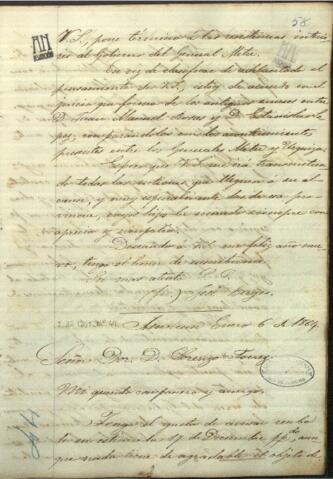 58
V.S. pone término a las
al Gobierno del General Mitre.
En vez de clasificar de adelantado el
pensamiento de V.S., estoy de acuerdo en el
juicio que forma de los antiguos sucesos entre
D. Juan Manuel Rosas y D. Estanislao Lo-
pez, comparándolos con los acontecimientos
presentes entre los Generales Mitre y Urquiza.
Espero que V.S. me irá transmitiendo
de todas las noticias que lleguen a su al-
cance, y muy especialmente las de esa pro-
vincia, cuyos hijos he mirado siempre con
aprecio y simpatía.
Deseando a V.S. muy feliz año nue-
vo, tengo el honor de suscribirme
Su mas atento S.S.
José Berges
Asuncion Enero 6 de 1864
Señor Dor. D. Lorenzo Torres
Mi querido compañero y amigo.
Tengo el gusto de avisar recibo
de su estimada 17 de Diciembre ppdo, aun
que nada tiene de agradable el objeto de